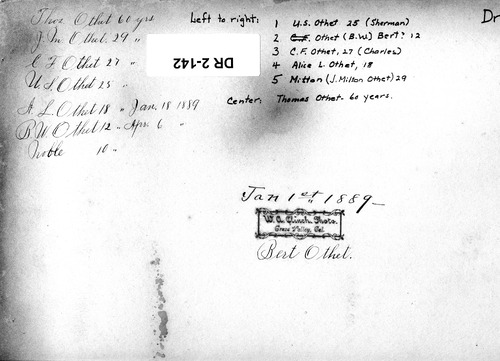 Thos Othet 60 yrs
J. M. Othet. 29 "
C F Othet 27 "
U. S. Othet 25 "
A. L. Othet 18 " Jan. 18 1889
B. W. Othet 12 " Apr. 6 "
Noble 10 "
DR 2-142
Left to right: 1 U.S. Othet 25 (Sherman)
2 C.F. Othet (B.W.) Bert? 12
3 C.F. Othet, 27 (Charles)
4 Alice L. Othet, 18
5 Milton (J. Milton Othet) 29
Center: Thomas Othet. 60 years.
Dr
Jan 1st 1889-
W. G. Clinch. Photo.
Grass Valley, Cal.
Bert Othet.